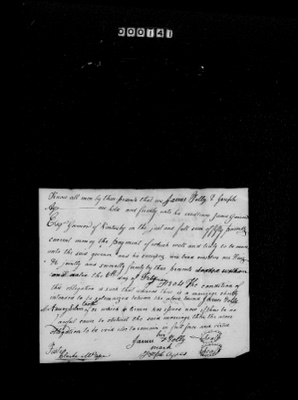 000141
Know all men by these presents that we James Polly & Joseph
are held and firmly unto his excellency James Garrard
Esqr Governor of Kentucky in the just and full sum of fifty pounds
current money the payment of which well and truly to be made
unto the said governor and his successors we bind ourselves our Heirs
&c jointly and severally firmly by these presents
day of The condition of
this obligation is such that whereas there is a marriage shortly
intended to be solemnized between the above bound James Polly
& now if there be no
lawful cause to obstruct the said marriage then the above
obligation to be void else to remain in full force and virtue
James Polly
mark
Joseph
Teste